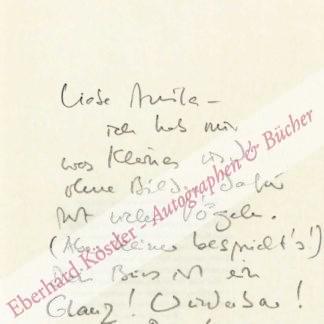 Liebe Anita –
ich hab nur
was Kleines und
ohne Bild, dafür
mit vielen Vögeln.
(Aber keiner bespricht's!)
Dein Büro ist ein
Glanz! Wunderbar!
Eberhard Köstler - Autographen & Bücher